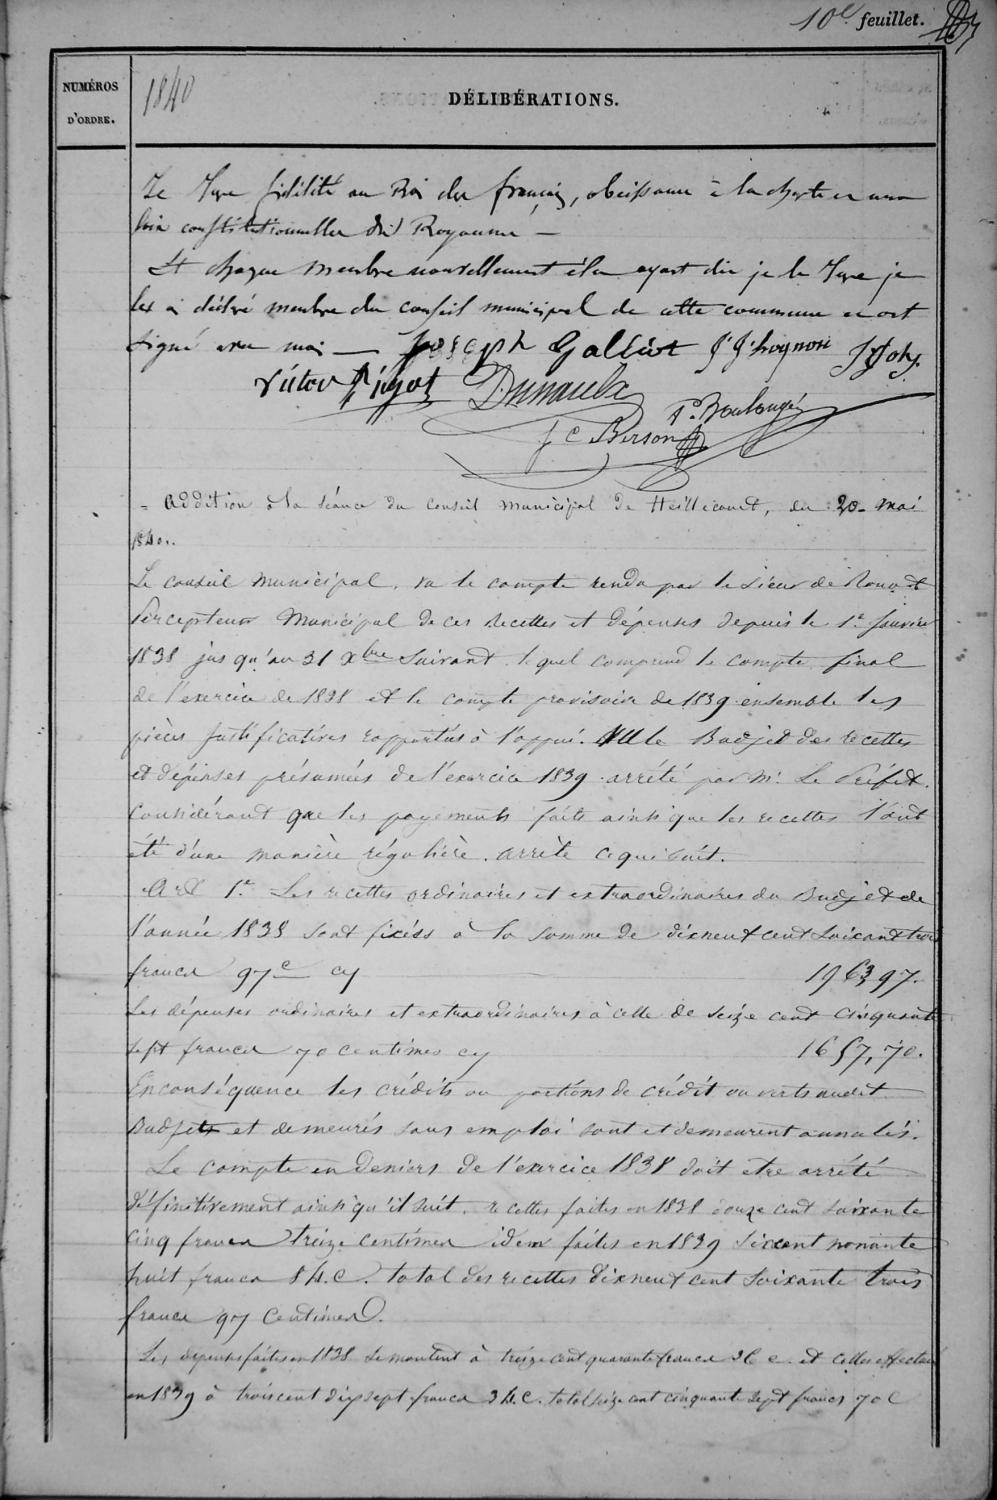 10e feuillet.
NUMÉROS
D'ORDRE.
1840
DÉLIBÉRATIONS.
Je Jure fidélité au Roi des français, obeissance à la charte et aux
lois constitutionnelles du Royaume —
Et chaque membre nouvellement élu ayant dit je le Jure je
les ai déclaré membre du conseil municipal de cette commune et ont
signé avec moi — Joseph Galliot
Victor
J C Berson
= Addition à la séance du conseil municipal de Heillecourt, du 20 mai
1840.
Le conseil municipal, vu le compte rendu par le sieur de
Percepteur Municipal de ces recettes et dépenses depuis le 1er Janvier
1838 jusqu'au 31 Xbre suivant, lequel comprend le compte final
de l'exercice de 1838 et le compte provisoire de 1839 ensemble les
pièces justificatives rapportées à l'appui. Vu le Budjet des recettes
et dépenses présumées de l'exercice 1839 arrêté par Mr Le Préfet.
Considérant que les payements faits ainsi que les recettes l'ont
été d'une manière régulière. arrête ce qui suit.
Art 1er Les recettes ordinaires et extraordinaires du Budjet de
l'année 1838 sont fixées à la somme de dixneuf cent soixante trois
francs 97 c cy 1963,97.
Les dépenses ordinaires et extraordinaires à celle de seize cent cinquante
sept francs 70 centimes cy 1657,70.
En conséquence les crédits ou portions de crédit ouverts audit
Budjet et demeurés sans emploi sont et demeurent annulés.
Le compte en deniers de l'exercice 1838 doit etre arrêté
définitivement ainsi qu'il suit. recettes faites en 1838 douze cent soixante
cinq francs treize centimes idem faites en 1839 sixcent nonante
huit francs 84. c. total des recettes dixneuf cent soixante trois
francs 97 centimes.
Les depenses faites en 1838 se montent à treize cent quarante francs 36 c. et celles effectuées
en 1839 à troiscent dix sept francs 34. c. total seize cent cinquante sept francs 70 c